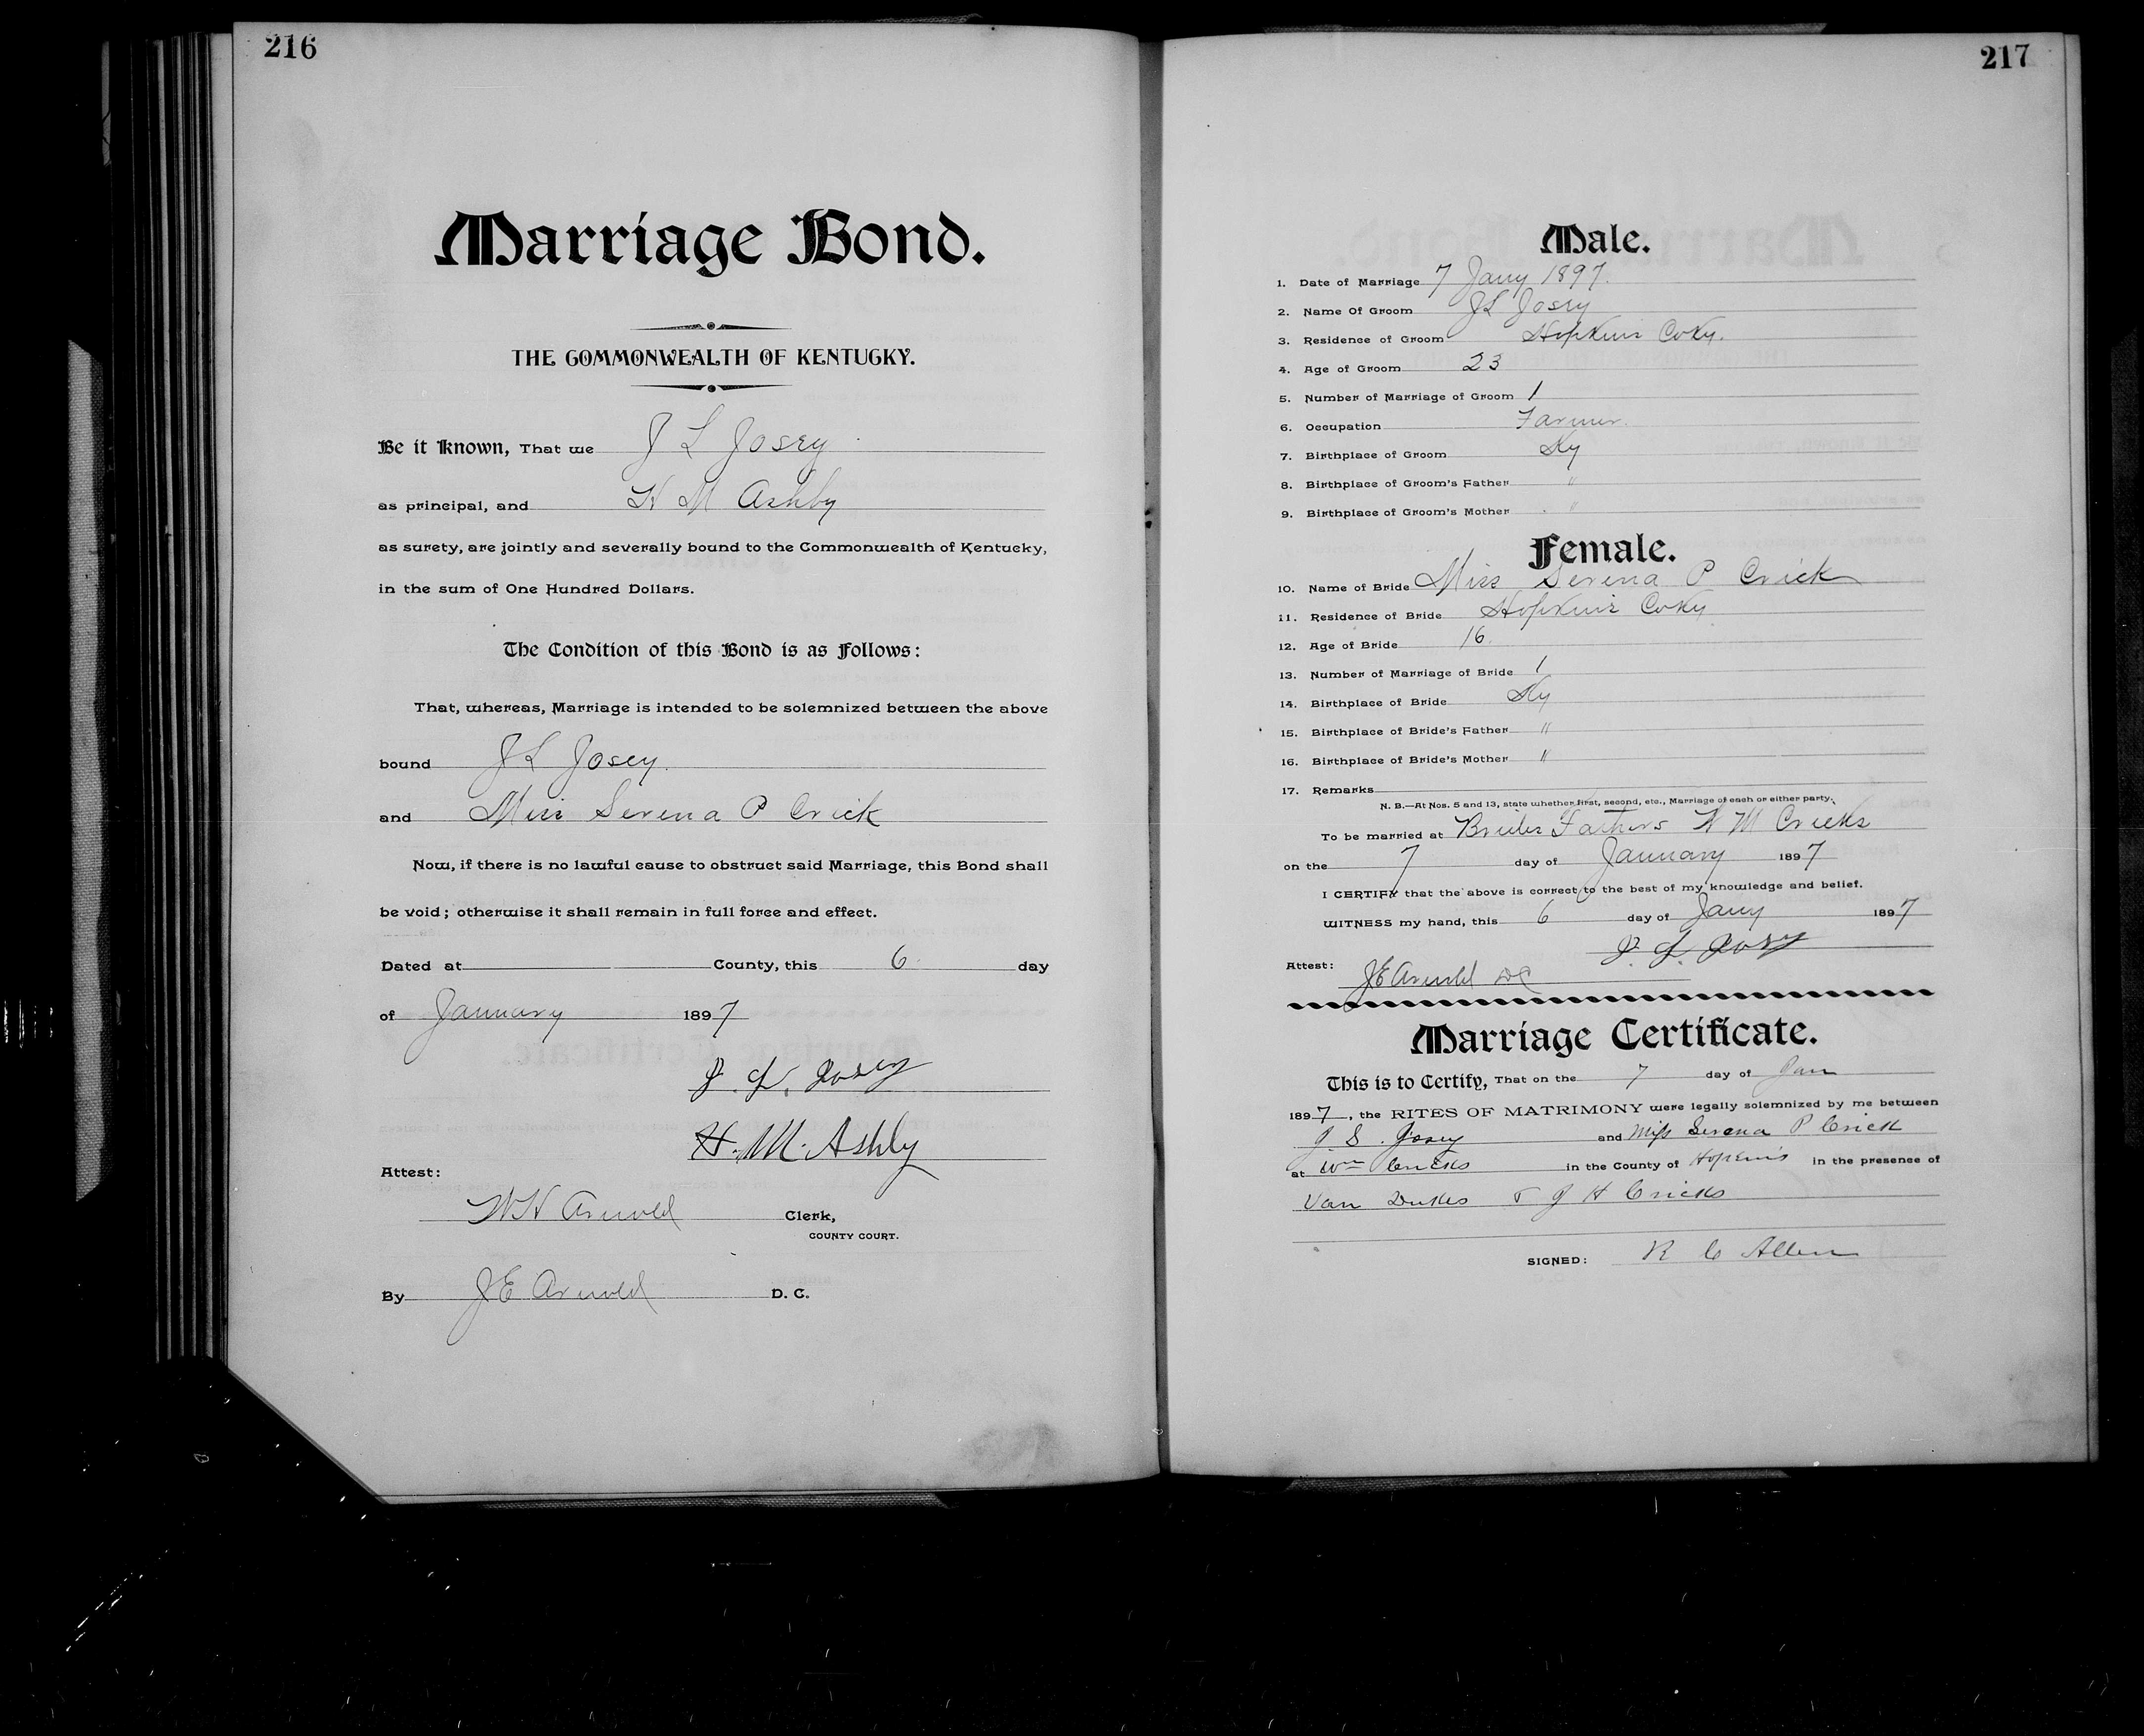 216
Marriage Bond.
THE COMMONWEALTH OF KENTUCKY.
Be it known, That we J L Josey
as principal, and H M Ashby
as surety, are jointly and severally bound to the Commonwealth of Kentucky,
in the sum of One Hundred Dollars.
The Condition of this Bond is as Follows:
That, whereas, Marriage is intended to be solemnized between the above
bound J L Josey.
and Miss Serena P Crick
Now, if there is no lawful cause to obstruct said Marriage, this Bond shall
be void; otherwise it shall remain in full force and effect.
Dated at County, this 6 day
of January 1897
J. L. Josey
H. M. Ashby
Attest:
W H Arnold Clerk,
COUNTY COURT.
By J E Arnold D. C.
217
Male.
1. Date of Marriage 7 Jany 1897.
2. Name Of Groom J L Josey
3. Residence of Groom Hopkins Co Ky.
4. Age of Groom 23
5. Number of Marriage of Groom 1
6. Occupation Farmer.
7. Birthplace of Groom Ky
8. Birthplace of Groom's Father "
9. Birthplace of Groom's Mother "
Female.
10. Name of Bride Miss Serena P Crick
11. Residence of Bride Hopkins Co Ky
12. Age of Bride 16.
13. Number of Marriage of Bride 1
14. Birthplace of Bride Ky
15. Birthplace of Bride's Father "
16. Birthplace of Bride's Mother "
17. Remarks
N. B.—At Nos. 5 and 13, state whether first, second, etc., Marriage of each or either party.
To be married at Brides Fathers W M Cricks
on the 7 day of January 1897
I CERTIFY that the above is correct to the best of my knowledge and belief.
WITNESS my hand, this 6 day of Jany 1897
J. L. Josey
Attest:
J E Arnold DC
Marriage Certificate.
This is to Certify, That on the 7 day of Jan
1897, the RITES OF MATRIMONY were legally solemnized by me between
J S. Josey and Miss Serena P Crick
at Wm Cricks in the County of Hopkins in the presence of
Van Dukes & J H Cricks
SIGNED: R C Allen